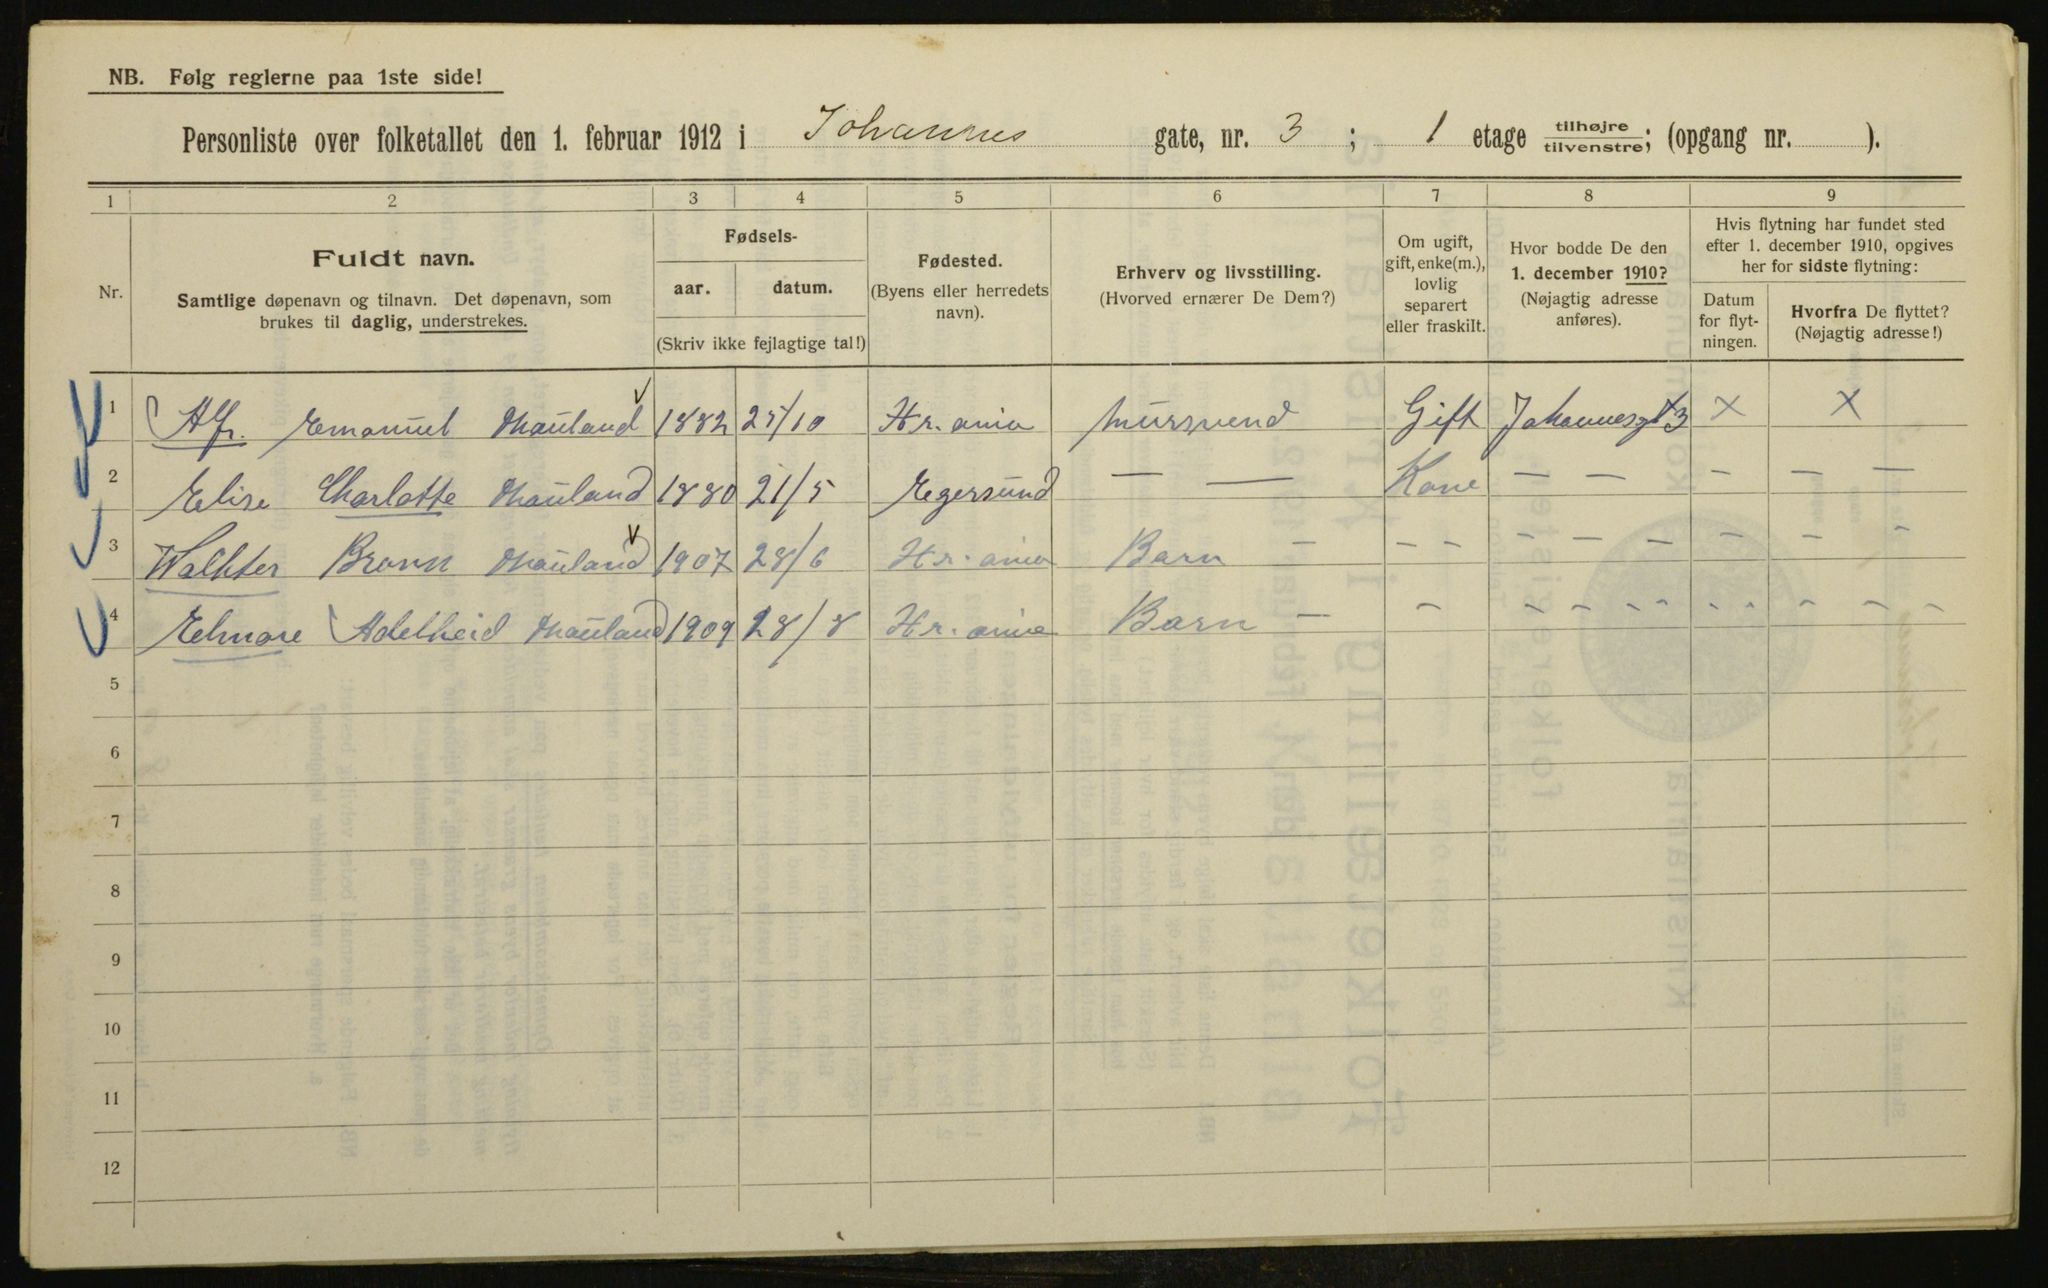 NB. Følg reglerne paa 1ste side!
Personliste over folketallet den 1. februar 1912 i Johannes gate, nr. 3; 1 etage tilhøjre tilvenstre; (opgang nr. ).
1 2 3 4 5 6 7 8 9
Nr.
Fuldt navn.
Samtlige døpenavn og tilnavn. Det døpenavn, som
brukes til daglig, understrekes.
Fødsels-
aar. datum.
(Skriv ikke fejlagtige tal!)
Fødested.
(Byens eller herredets
navn).
Erhverv og livsstilling.
(Hvorved ernærer De Dem?)
Om ugift,
gift, enke(m.),
lovlig
separert
eller fraskilt.
Hvor bodde De den
1. december 1910?
(Nøjagtig adresse
anføres).
Hvis flytning har fundet sted
efter 1. december 1910, opgives
her for sidste flytning:
Datum
for flyt-
ningen.
Hvorfra De flyttet?
(Nøjagtig adresse!)
1 Alfr. Emanuel Mauland 1882 25/10 Kr.ania Mursvend Gift Johannesgt 3 X X
2 Elise Charlotte Mauland 1880 21/5 Egersund — — Kone — — — — —
3 Walhter Mauland 1907 28/6 Kr.ania Barn - - - - - - - - -
4 Adelheid Mauland 1909 28/8 Kr.ania Barn - - - - - - - - - -
5
6
7
8
9
10
11
12